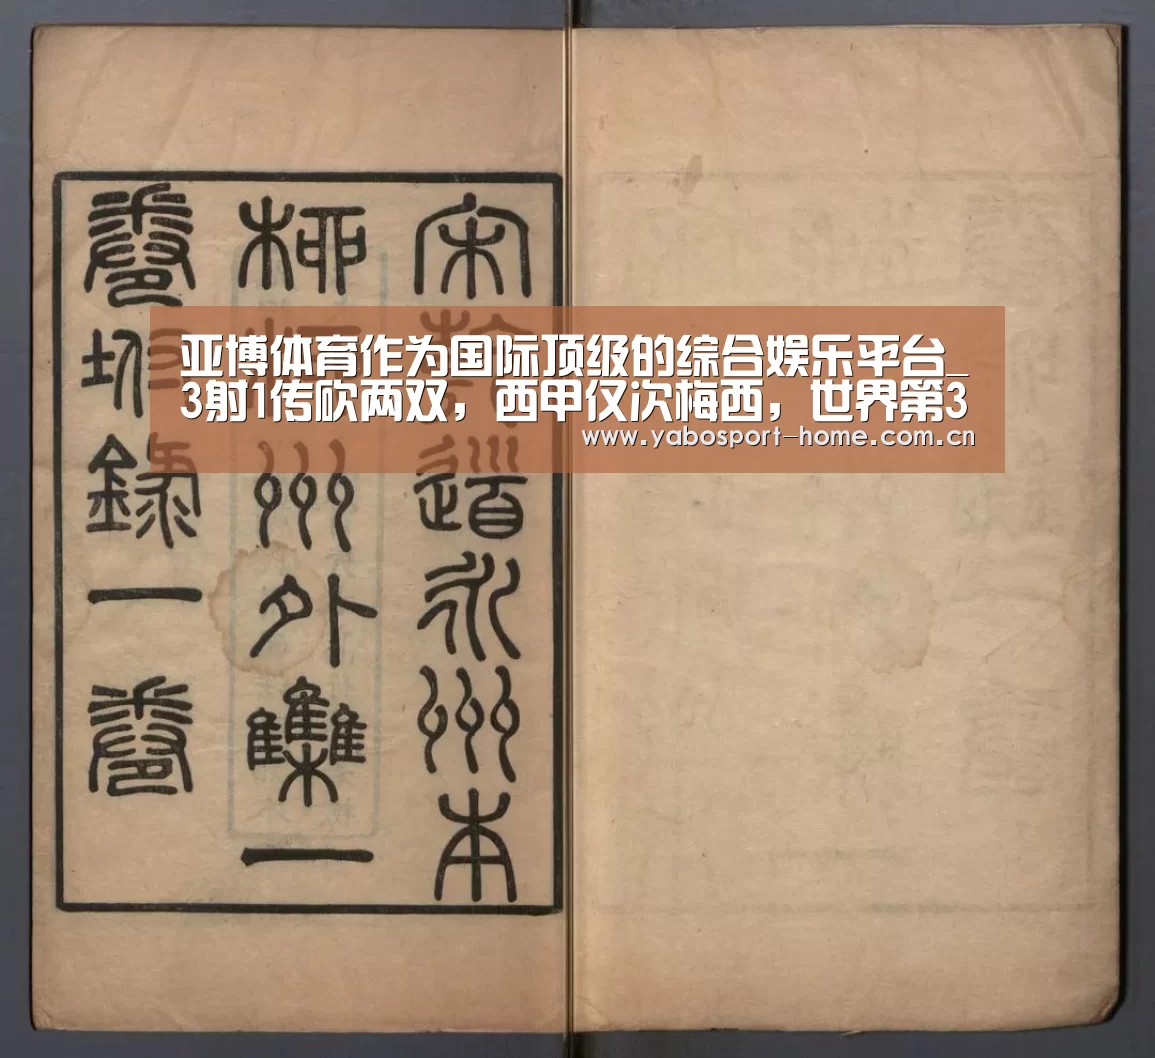 亚博体育作为国际顶级的综合娱乐平台_
3射1传砍两双，西甲仅次梅西，世界第3
www.yabosport-home.com.cn
宋乾道永州本
柳柳州外集一
卷附錄一卷